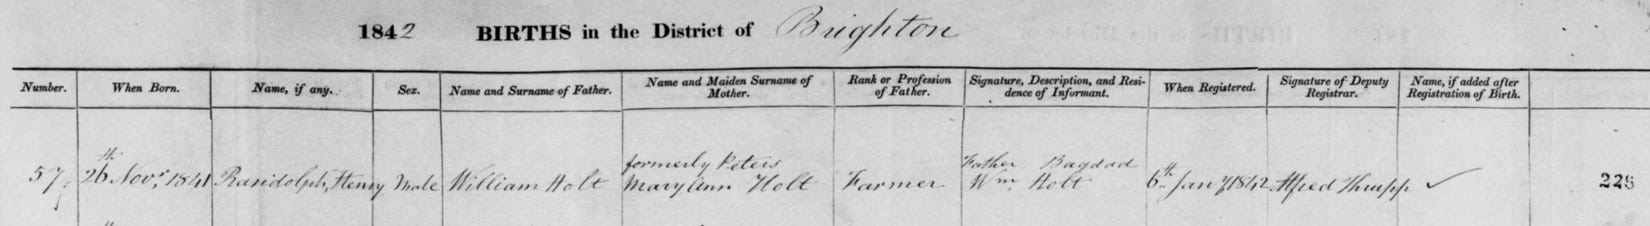 1842 BIRTHS in the District of Brighton
Number. When Born. Name, if any. Sex. Name and Surname of Father. Name and Maiden Surname of Mother. Rank or Profession of Father. Signature, Description, and Residence of Informant. When Registered. Signature of Deputy Registrar. Name, if added after Registration of Birth.
formerly Peters Father Bagdad
57 26th Novr. 1841 Randolph, Henry Male William Holt Mary Ann Holt Farmer Wm. Holt 6th Jany 1842 Alfred Thrupp ✓ 228